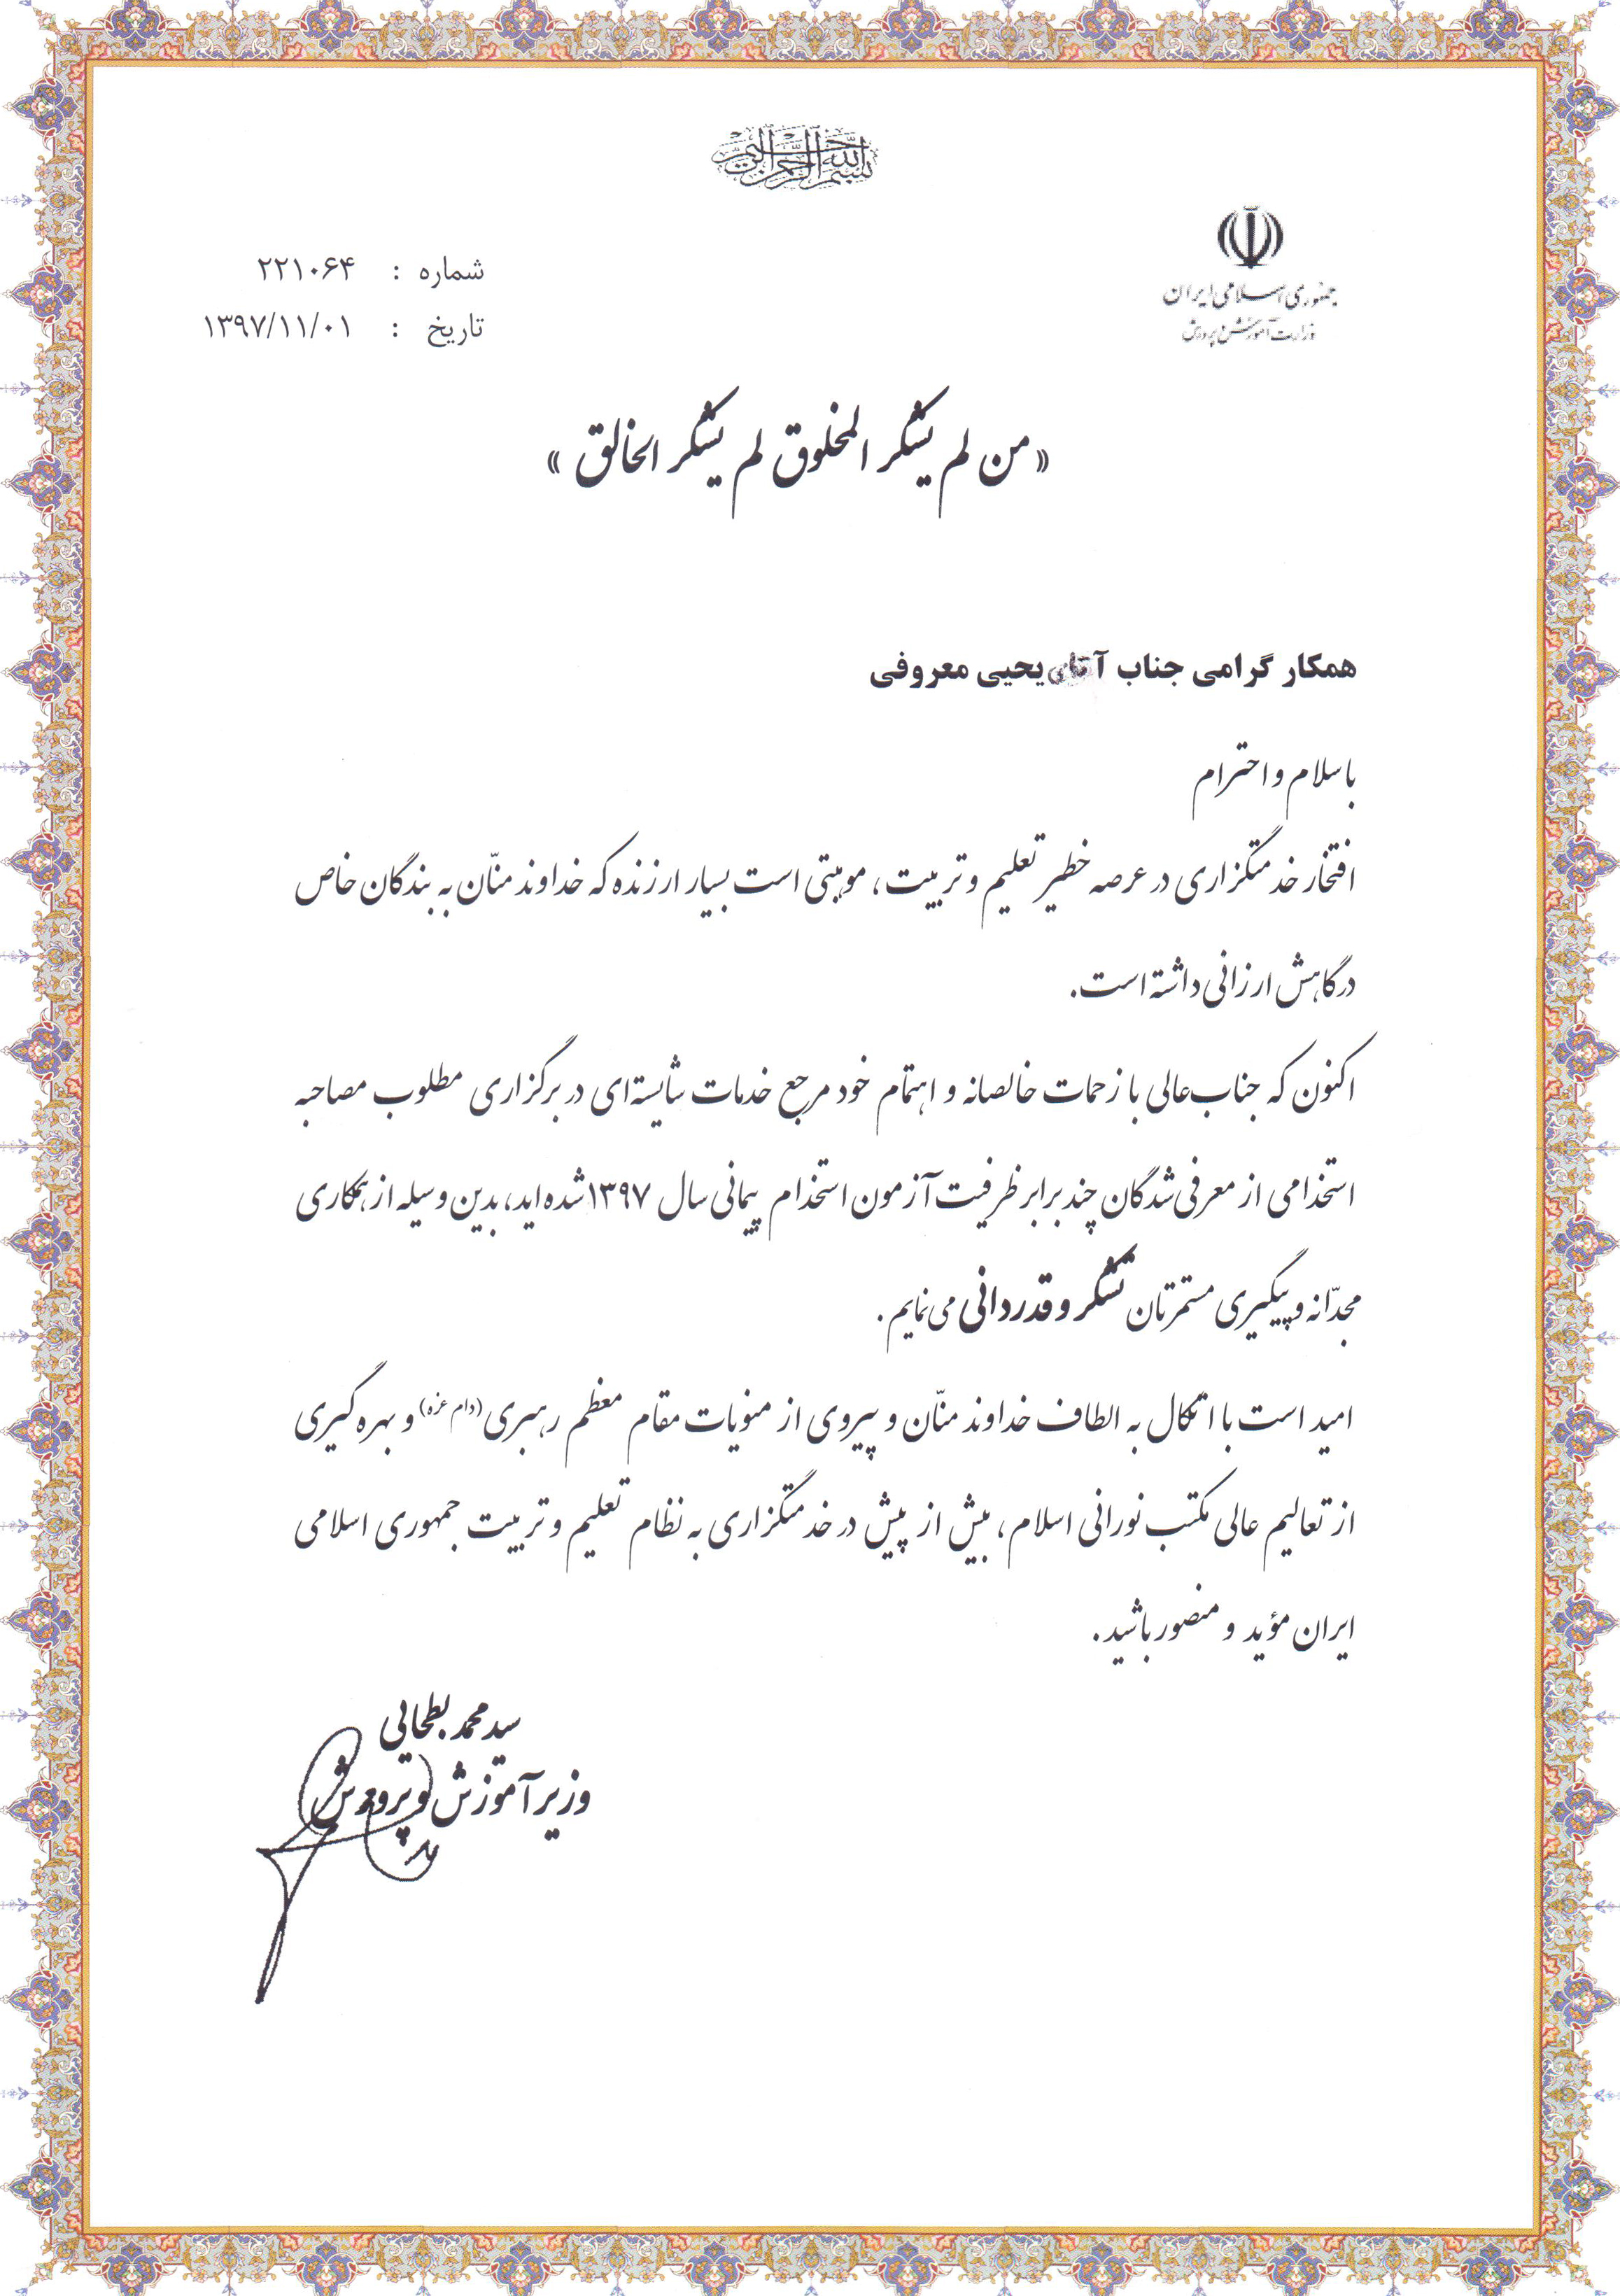 بسم الله الرحمن الرحیم
جمهوری اسلامی ایران
وزارت آموزش و پرورش
شماره : ۲۲۱۰۶۴
تاریخ : ۱۳۹۷/۱۱/۰۱
«من لم یشکر المخلوق لم یشکر الخالق»
همکار گرامی جناب آقای یحیی معروفی
با سلام و احترام
افتخار خدمتگزاری در عرصه خطیر تعلیم و تربیت، موهبتی است بسیار ارزنده که خداوند منّان به بندگان خاص
درگاهش ارزانی داشته است.
اکنون که جناب‌عالی با زحمات خالصانه و اهتمام خود مرجع خدمات شایسته‌ای در برگزاری مطلوب مصاحبه
استخدامی از معرفی شدگان چند برابر ظرفیت آزمون استخدام پیمانی سال ۱۳۹۷ شده اید، بدین وسیله از همکاری
مجدّانه و پیگیری مستمرتان تشکر و قدردانی می‌نمایم.
امید است با اتکال به الطاف خداوند منّان و پیروی از منویات مقام معظم رهبری (دام عزه) و بهره گیری
از تعالیم عالی مکتب نورانی اسلام، بیش از پیش در خدمتگزاری به نظام تعلیم و تربیت جمهوری اسلامی
ایران مؤید و منصور باشید.
سید محمد بطحایی
وزیر آموزش و پرورش